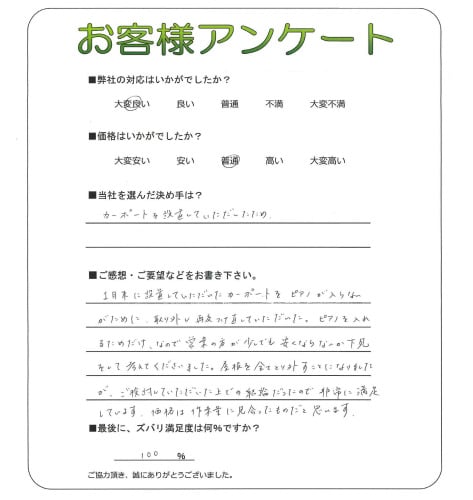 お客様アンケート
■弊社の対応はいかがでしたか？
大変良い　良い　普通　不満　大変不満
■価格はいかがでしたか？
大変安い　安い　普通　高い　大変高い
■当社を選んだ決め手は？
カーポートを設置していただいたため.
■ご感想・ご要望などをお書き下さい。
1月末に設置していただいたカーポートを ピアノが入らない
がために、取り外し 再度付け直していただいた。 ピアノを入れ
るためだけ、なので 営業の方が 少しでも 安くならないか 下見
をして 考えてくださいました。屋根を全てとり外すことになりました
が、ご検討していただいた上での 結論だったので 非常に満足
しています. 価格は 作業量に見合ったものだと思います.
■最後に、ズバリ満足度は何%ですか？
100　％
ご協力頂き、誠にありがとうございました。